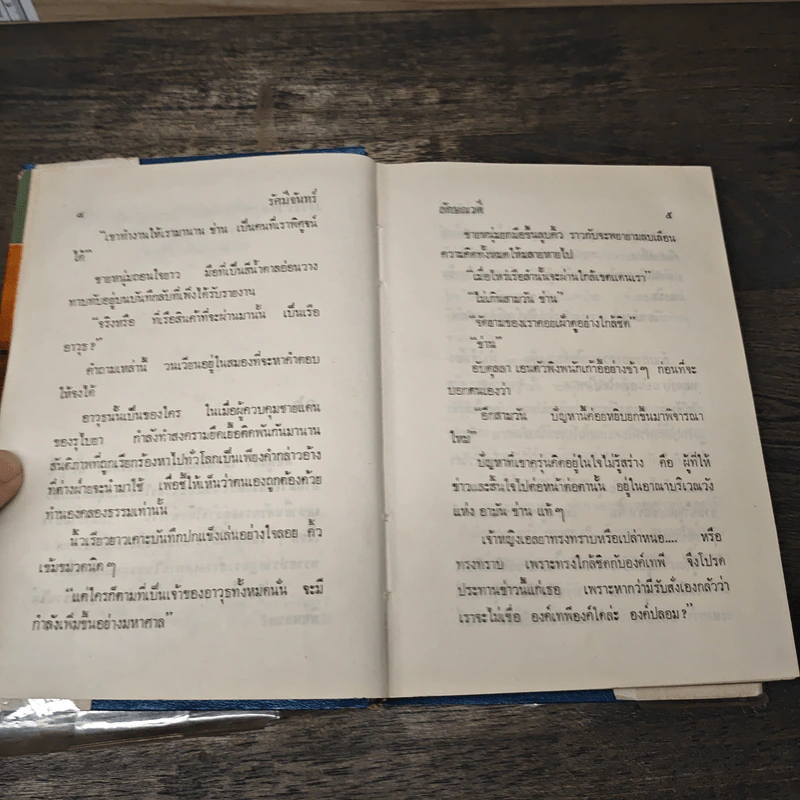 ๔ รัศมีจันทร์
"เขาทำงานให้เรามานาน ข่าน เป็นคนที่เราพิศูจน์
ได้"
ชายหนุ่มถอนใจยาว มือที่เป็นสีน้ำตาลอ่อนวาง
ทาบทับอยู่บนบันทึกลับที่เพิ่งได้รับรายงาน
"จริงหรือ ที่เรือสินค้าที่จะผ่านมานั้น เป็นเรือ
อาวุธ?"
คำถามเหล่านี้ วนเวียนอยู่ในสมองที่จะหาคำตอบ
ให้จงได้
อาวุธนั้นเป็นของใคร ในเมื่อผู้ควบคุมชายแดน
ของรุไบยา กำลังทำสงครามยืดเยื้อติดพันกันมานาน
สันติภาพที่ถูกเรียกร้องหาไปทั่วโลกเป็นเพียงคำกล่าวอ้าง
ที่ต่างฝ่ายจะนำมาใช้ เพื่อชี้ให้เห็นว่าตนเองถูกต้องด้วย
ทำนองคลองธรรมเท่านั้น
นิ้วเรียวยาวเคาะบันทึกปกแข็งเล่นอย่างใจลอย คิ้ว
เข้มขมวดนิดๆ
"แต่ใครก็ตามที่เป็นเจ้าของอาวุธทั้งหมดนั่น จะมี
กำลังเพิ่มขึ้นอย่างมหาศาล"
ลักษณวดี ๕
ชายหนุ่มยกมือขึ้นลูบคิ้ว ราวกับจะพยายามลบเลือน
ความคิดทั้งหมดให้มลายหายไป
"เมื่อไหร่เรือลำนั้นจะผ่านใกล้เขตแดนเรา"
"ไม่เกินสามวัน ข่าน"
"จัดยามของเราคอยเฝ้าดูอย่างใกล้ชิด"
"ข่าน"
อับดุลลา เอนตัวพิงพนักเก้าอี้อย่างช้าๆ ก่อนที่จะ
บอกตนเองว่า
"อีกสามวัน ปัญหานี้ค่อยหยิบยกขึ้นมาพิจารณา
ใหม่"
ปัญหาที่เขาครุ่นคิดอยู่ในใจไม่รู้สร่าง คือ ผู้ที่ให้
ข่าวและสิ้นใจไปต่อหน้าต่อตานั้น อยู่ในอาณาบริเวณวัง
แห่ง อามัน ข่าน แท้ๆ
เจ้าหญิงเอลยาทรงทราบหรือเปล่าหนอ.... หรือ
ทรงทราบ เพราะทรงใกล้ชิดกับองค์เทพี จึงโปรด
ประทานข่าวนี้แก่เธอ เพราะหากว่ามีรับสั่งเองกลัวว่า
เราจะไม่เชื่อ องค์เทพีองค์ใดล่ะ องค์ปลอม?"